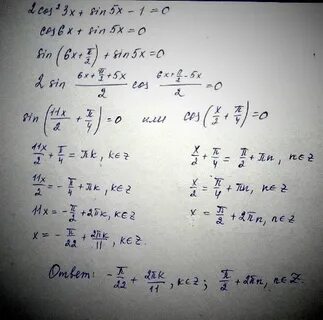 2cos²3x + sin5x - 1 = 0
cos6x + sin5x = 0
sin(6x + π/2) + sin5x = 0
2 sin (6x + π/2 + 5x)/2 cos (6x + π/2 - 5x)/2 = 0
sin(11x/2 + π/4) = 0 или cos(x/2 + π/4) = 0
11x/2 + π/4 = πk, k∈Z
11x/2 = -π/4 + πk, k∈Z
11x = -π/2 + 2πk, k∈Z
x = -π/22 + 2πk/11, k∈Z.
x/2 + π/4 = π/2 + πn, n∈Z
x/2 = π/4 + πn, n∈Z
x = π/2 + 2πn, n∈Z
Ответ: -π/22 + 2πk/11, k∈Z; π/2 + 2πn, n∈Z.